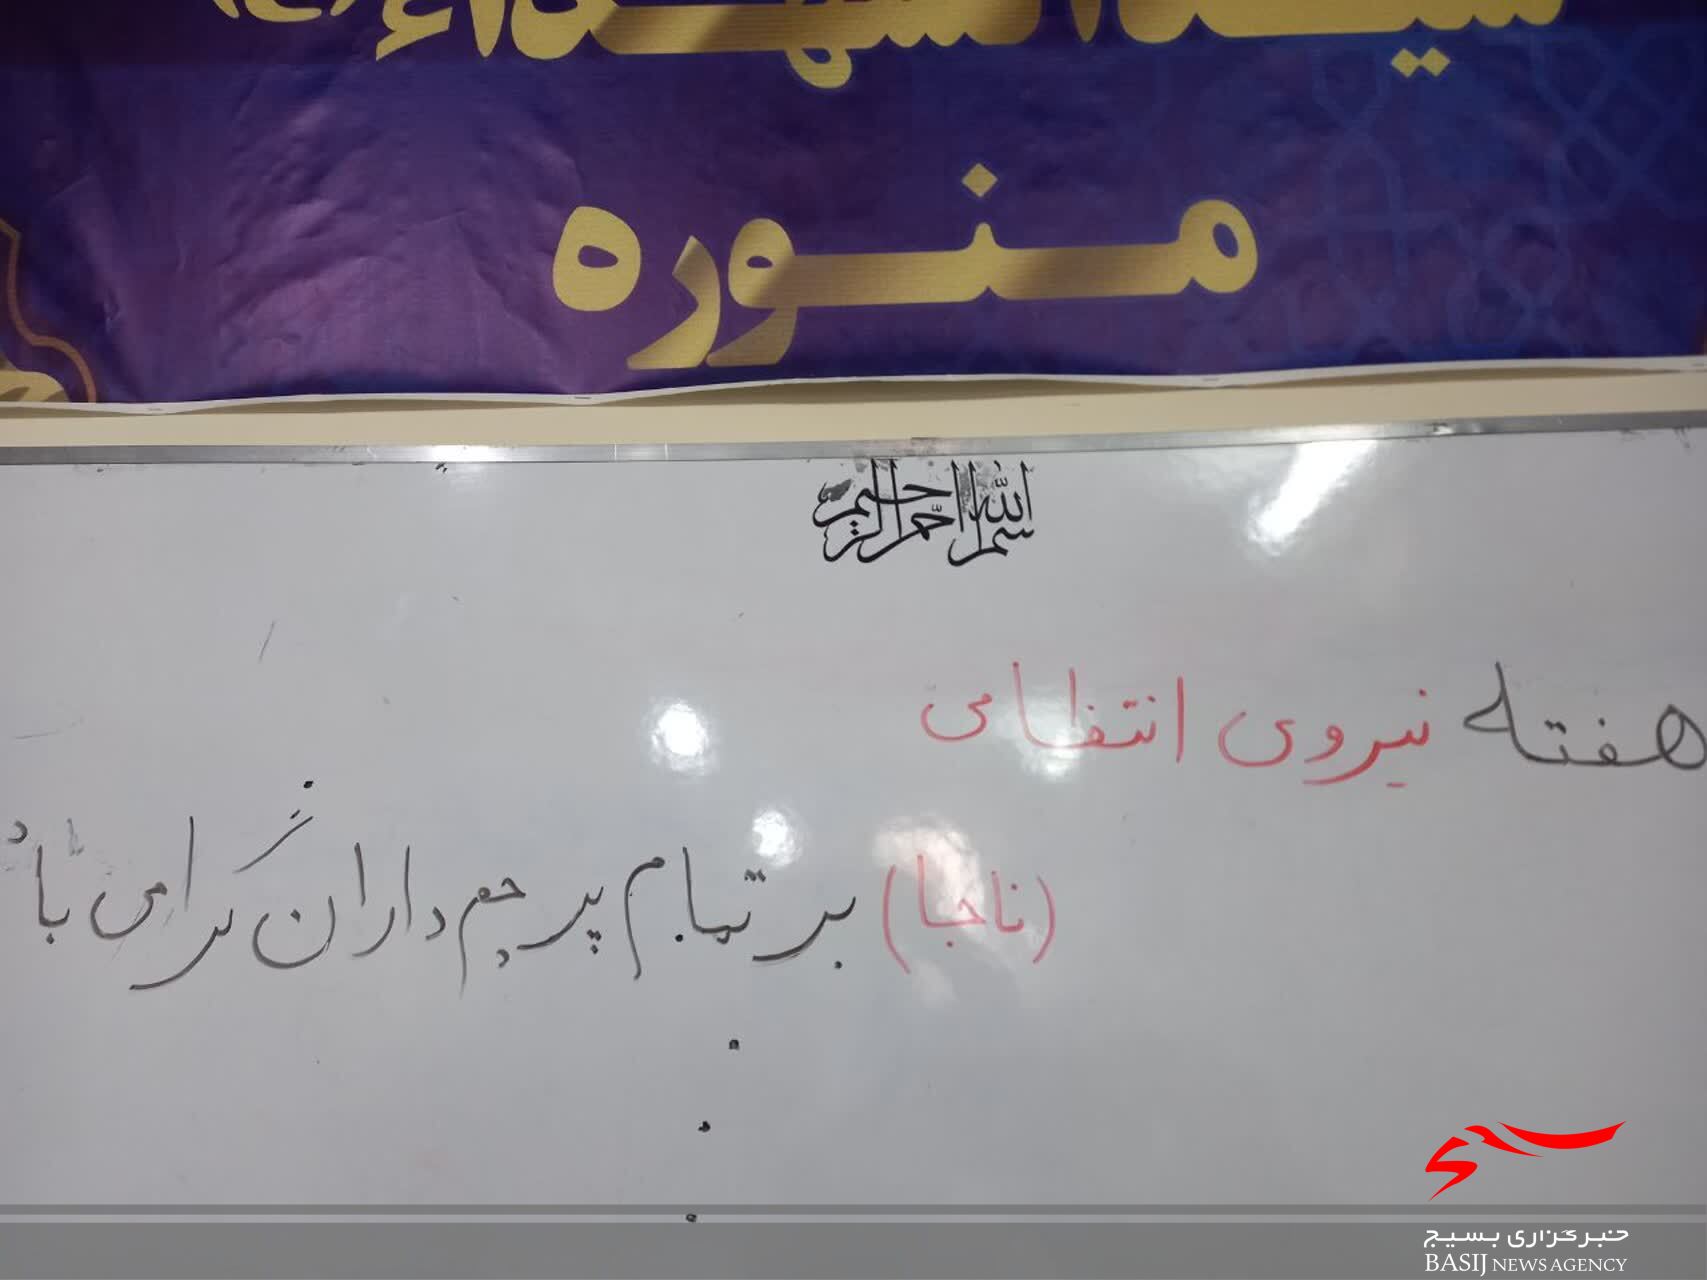 سیدالشهداء (ع)
منوره
بسم الله الرحمن الرحیم
هفته نیروی انتظامی
(ناجا) بر تمام پرچم داران گرامی باد
خبرگزاری بسیج
BASIJ NEWS AGENCY